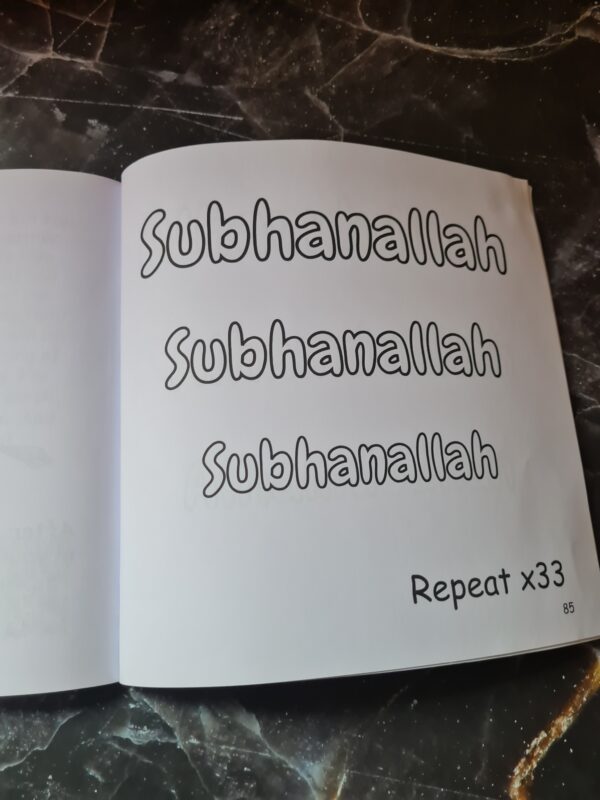 Subhanallah
Subhanallah
Subhanallah
Repeat x33
85